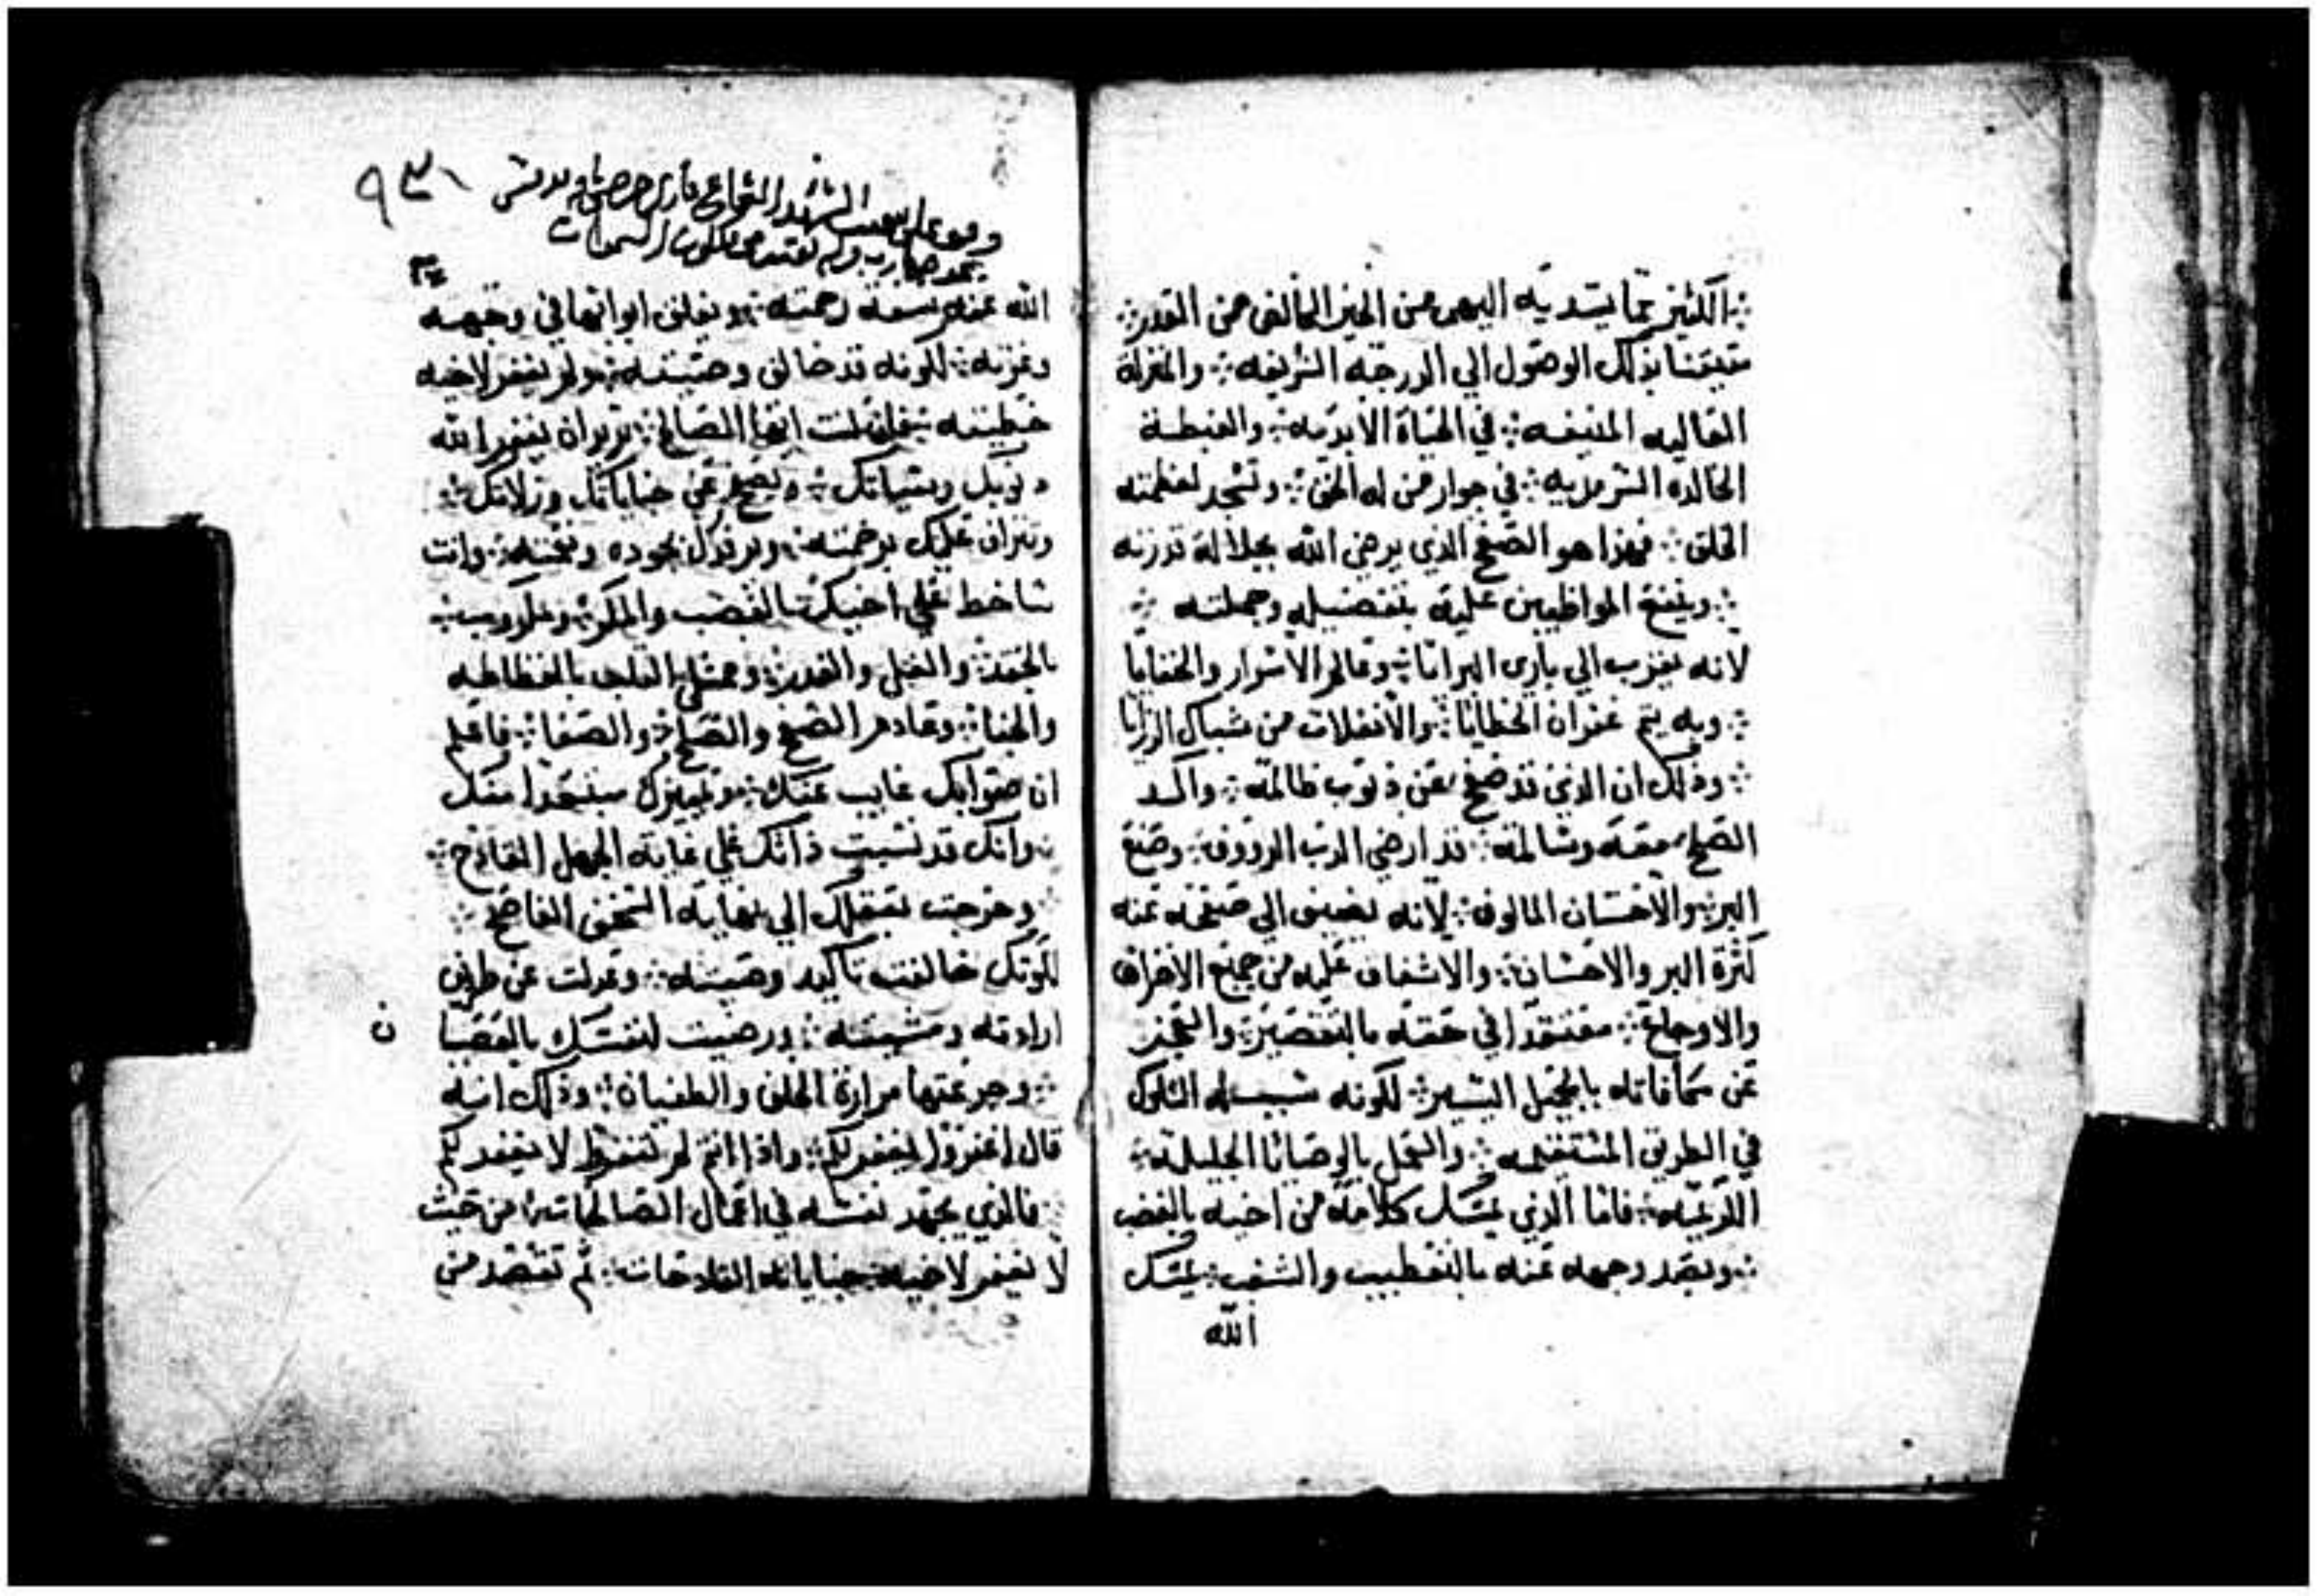 الكثير مما يبتديه اليهم من الخير الخالص من القدر
متيقنا بذلك الوصول الي الدرجه الشريفه والمنزلة
العاليه المنيفه في الحياة الابديه والغبطة
الخالده السرمديه في جوار من له الحق وتسجد لعظمته
الخلق فهذا هو الصفح الذي يرضي الله بجلالة قدرته
وينفع المواظبين عليه بتفضيله وجملته
لانه يقرب الي باري البرايا وعالم الاسرار والخفايا
وبه يتم غفران الخطايا والانفلات من شباك الرزايا
وذلك ان الذي قد صفح عن ذنوب ظالمه واكد
الصلح معه وسالمه قد ارضي الرب الرووف وصنع
البر والاحسان المالوف لانه يضيف الي صفحه عنه
كثرة البر والاحسان والاشفاق عليه من جميع الاحزان
والاوجاع معتقدا في حقه بالتقصير والعجز
عن مكافاته بالجميل اليسير لكونه سبب له السلوك
في الطريق المستقيمه والعمل بالوصايا الجليلة
الكريمه فاما الذي يمسك كلامه من اخيه بالغضب
ويصد وجهه عنه بالتقطيب والشغب يمسك
الله
٩٣١
الله عنه سعة رحمته ويغلق ابوابها في وجهه
وعزته لكونه قد خالف وصيته ولم يغفر لاخيه
خطيته فان قلت ايها الصالح تريد ان يغفر الله
ذنوبك وسياتك ويصفح عن خباياتك وزلاتك
ويتراف عليك برحمته ويرفدك بجوده ونعمته وانت
ساخط علي اخيك بالغضب والمكر ومكروب
بالحقد والغل والغدر وممتلي القلب بالفظاظه
والجفا وعادم الصفح والصلح والصفا فاعلم
ان صوابك غايب عنك وتمييزك مبتعدا منك
وانك قد نسبت ذاتك علي غاية الجهل الفادح
وخرجت بعقلك الي نهاية السخف الفاضح
لكونك خالفت تاكيد وصيته وعدلت عن طريق
ارادته ومشيته ورضيت لنفسك بالعصيا
ن
وجرعتها مرارة الخلف والطغيان وذلك انه
قال اغفروا ليغفر لكم واذا انتم لم تغفروا لا يغفر لكم
فالذي يجهد نفسه في اعمال الصالحات من حيث
لا يغفر لاخيه جناياته الفادحات ثم تقصد من